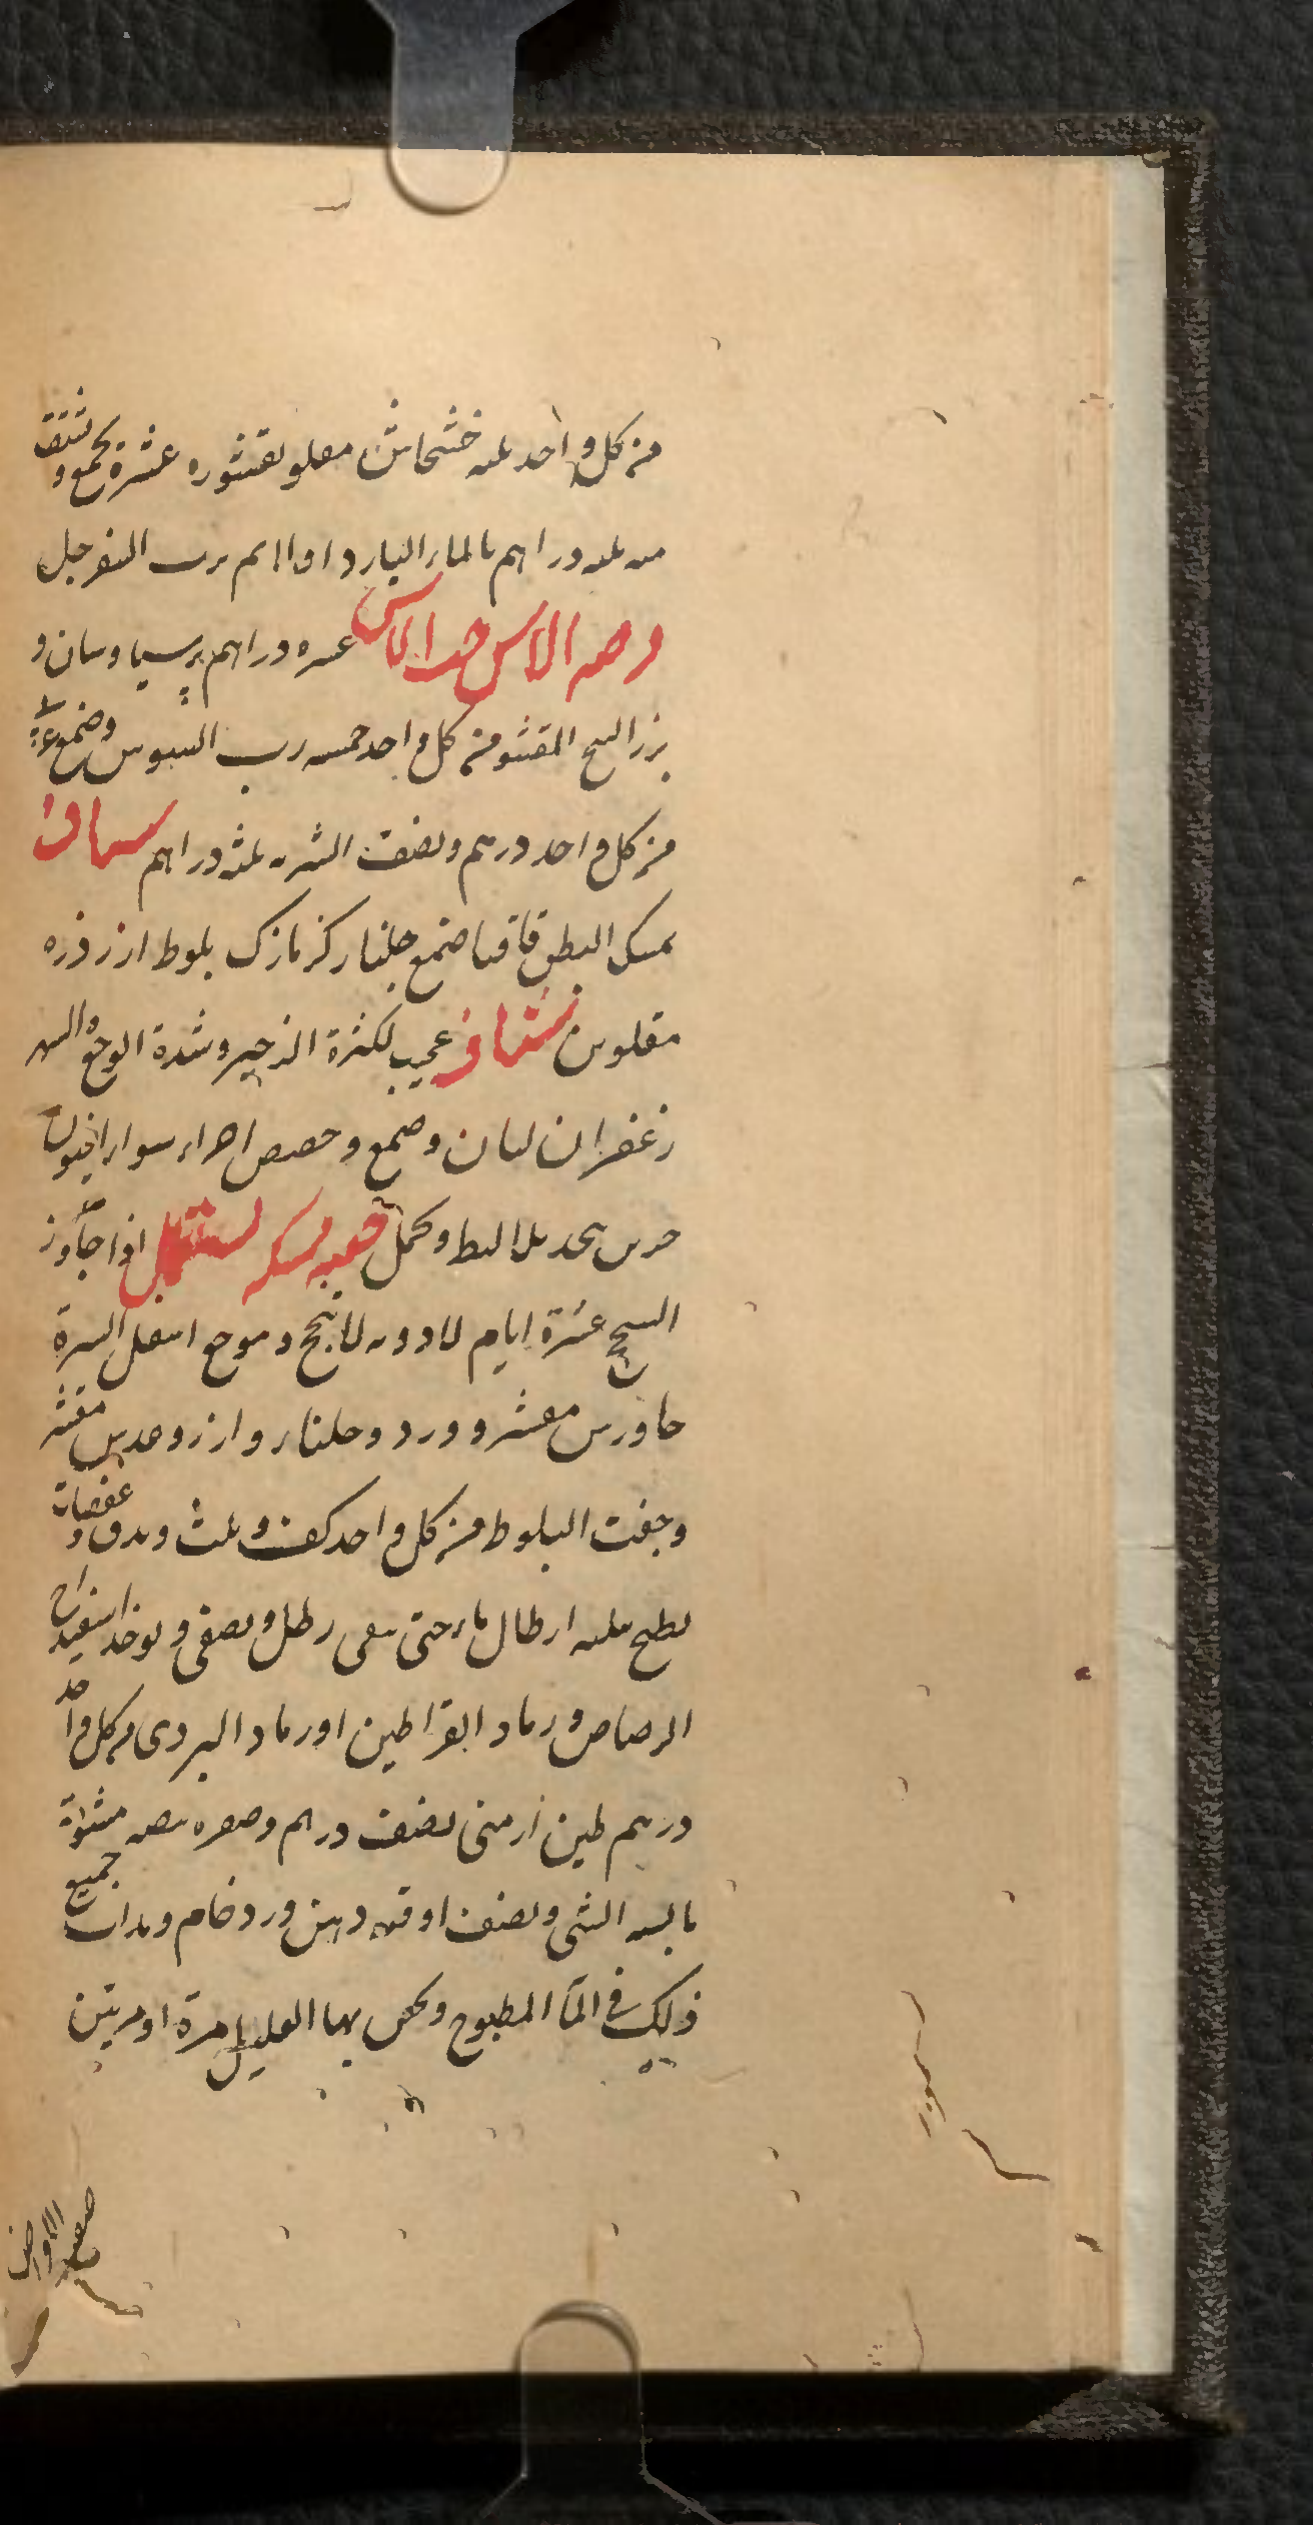 من كل واحد ثلثه خشخاش مقلو بقشوره عشرة يجمع و
منه ثلثه دراهم بالماء البارد او برب السفرجل
قرصه الاس حب الاس عشره دراهم برسياوشان و
بزر البنج المقشو من كل واحد خمسه رب السوس وصمغ
من كل واحد درهم ونصف الشربه ثلثه دراهم شياف
يمسك البطن قاقيا صمغ جلنار كزمازك بلوط ارز ذره
مقلوين شياف عجيب لكثرة الزحير وشدة الوجع والسهر
زعفران لبان وصمغ وحضض اجزاء سواء افيون
البط ويحمل حقنه ممسكه تستعمل اذا جاوز
السحج عشرة ايام الادويه لا ينجح وموجع اسفل السرة
جاورس مقشر وورد وجلنار وارز وعدس مقشر
وجفت البلوط من كل واحد كف وثلث عفصات
يطبخ بثلثه ارطال ماء حتى يبقى رطل ويصفى ويوخذ اسفيداج
الرصاص ورماد القراطين او رماد البردى من كل واحد
درهم طين ارمنى نصف درهم وصفره بيضه مشواة
يابسه الشى ونصف اوقيه دهن ورد خام ويداف جميع
ذلك فى الماء المطبوخ ويحقن بها العليل مرة او مرتين